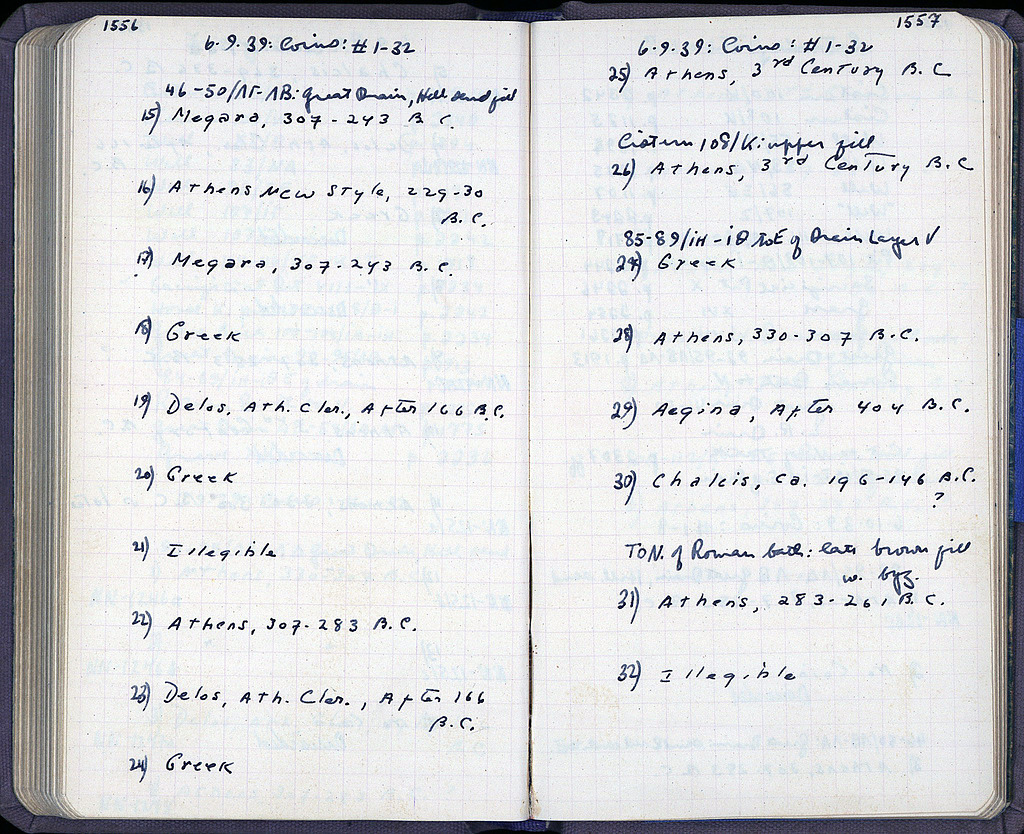 1556
6.9.39: Coins: #1-32
46-50/ΛΓ-ΛΒ: Great Drain, Hell sand fill
15) Megara, 307-243 B.C.
16) Athens New Style, 229-30
B.C.
17) Megara, 307-243 B.C.
18) Greek
19) Delos, Ath. Cler., After 166 B.C.
20) Greek
21) Illegible
22) Athens, 307-283 B.C.
23) Delos, Ath. Cler., After 166
B.C.
24) Greek
1557
6.9.39: Coins: #1-32
25) Athens, 3rd Century B.C
Cistern 108/K: upper fill
26) Athens, 3rd Century B.C
85-89/ΙΗ-ΙΘ To E of Drain Layer V
27) Greek
28) Athens, 330-307 B.C.
29) Aegina, After 404 B.C.
30) Chalcis, ca. 196-146 B.C.
?
To N. of Roman bath: late brown fill
w. byz.
31) Athens, 283-261 B.C.
32) Illegible